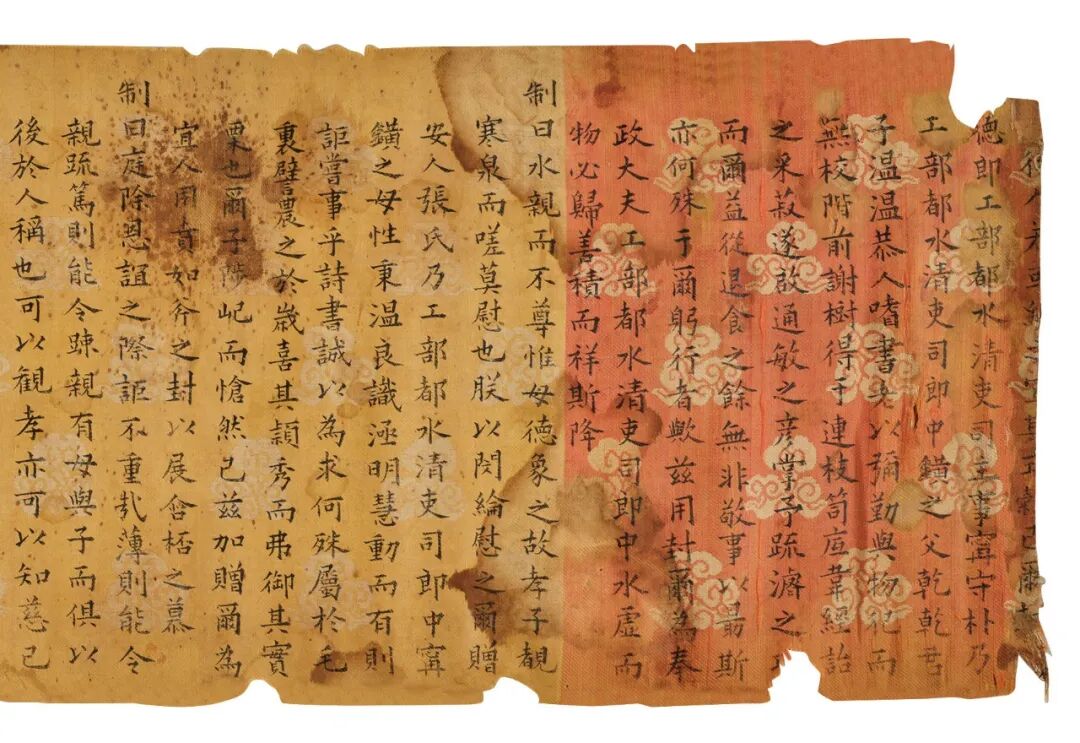 德郎工部都水清吏司主事甯守朴乃
工部都水清吏司郎中鑛之父乾乾君
子温温恭人嗜書老以彌勤與物犯而
無校階前謝樹得于連枝笥庋韋經詒
之采菽遂啟通敏之彦掌予疏濬之
而爾益從退食之餘無非敬事以最斯
亦何殊于爾躬行者歟兹用封爾為奉
政大夫工部都水清吏司郎中水虛而
物必歸善積而祥斯降
制曰水親而不尊惟母德象之故孝子覩
寒泉而嗟莫慰也朕以閔綸慰之爾贈
安人張氏乃工部都水清吏司郎中甯
鑛之母性秉温良識涵明慧動而有則
詎嘗事乎詩書誠以為求何殊屬於毛
裏譬農之於歲喜其穎秀而弗御其實
栗也爾子陟屺而愴然已兹加贈爾為
宜人用賁如斧之封以展含桮之慕
制曰庭除恩誼之際詎不重哉薄則能令
親疏篤則能令踈親有母與子而俱以
後於人稱也可以観孝亦可以知慈已